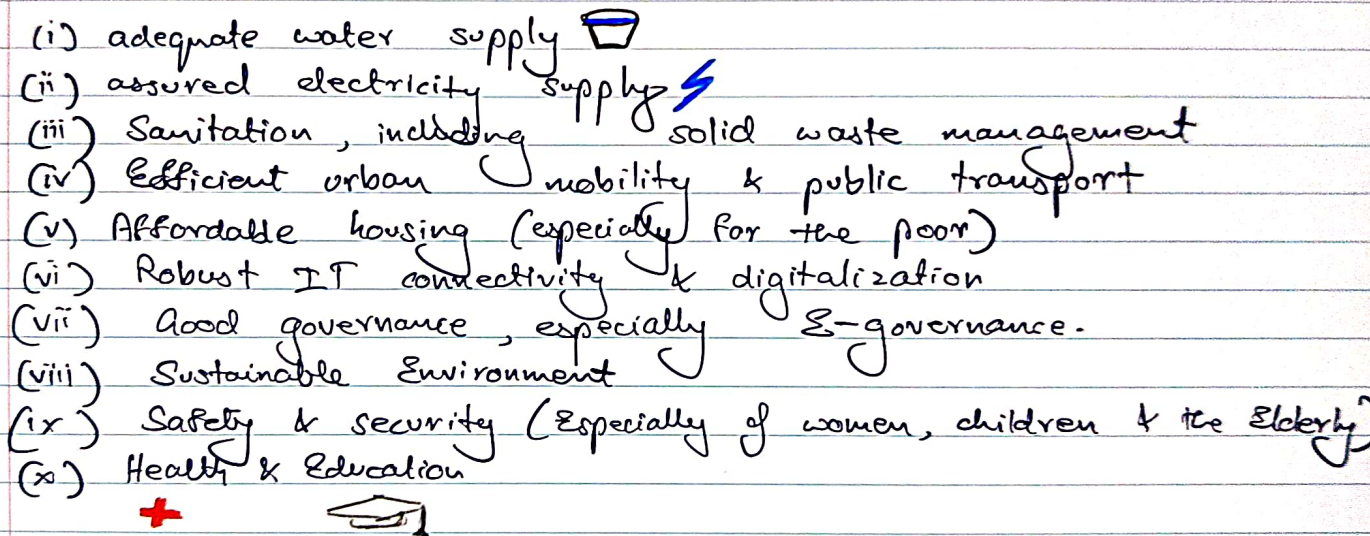 (i) adequate water supply
(ii) assured electricity supply
(iii) Sanitation, including solid waste management
(iv) Efficient urban mobility & public transport
(v) Affordable housing (especially for the poor)
(vi) Robust IT connectivity & digitalization
(vii) Good governance, especially E-governance.
(viii) Sustainable Environment
(ix) Safety & security (Especially of women, children & the Elderly)
(x) Health & Education